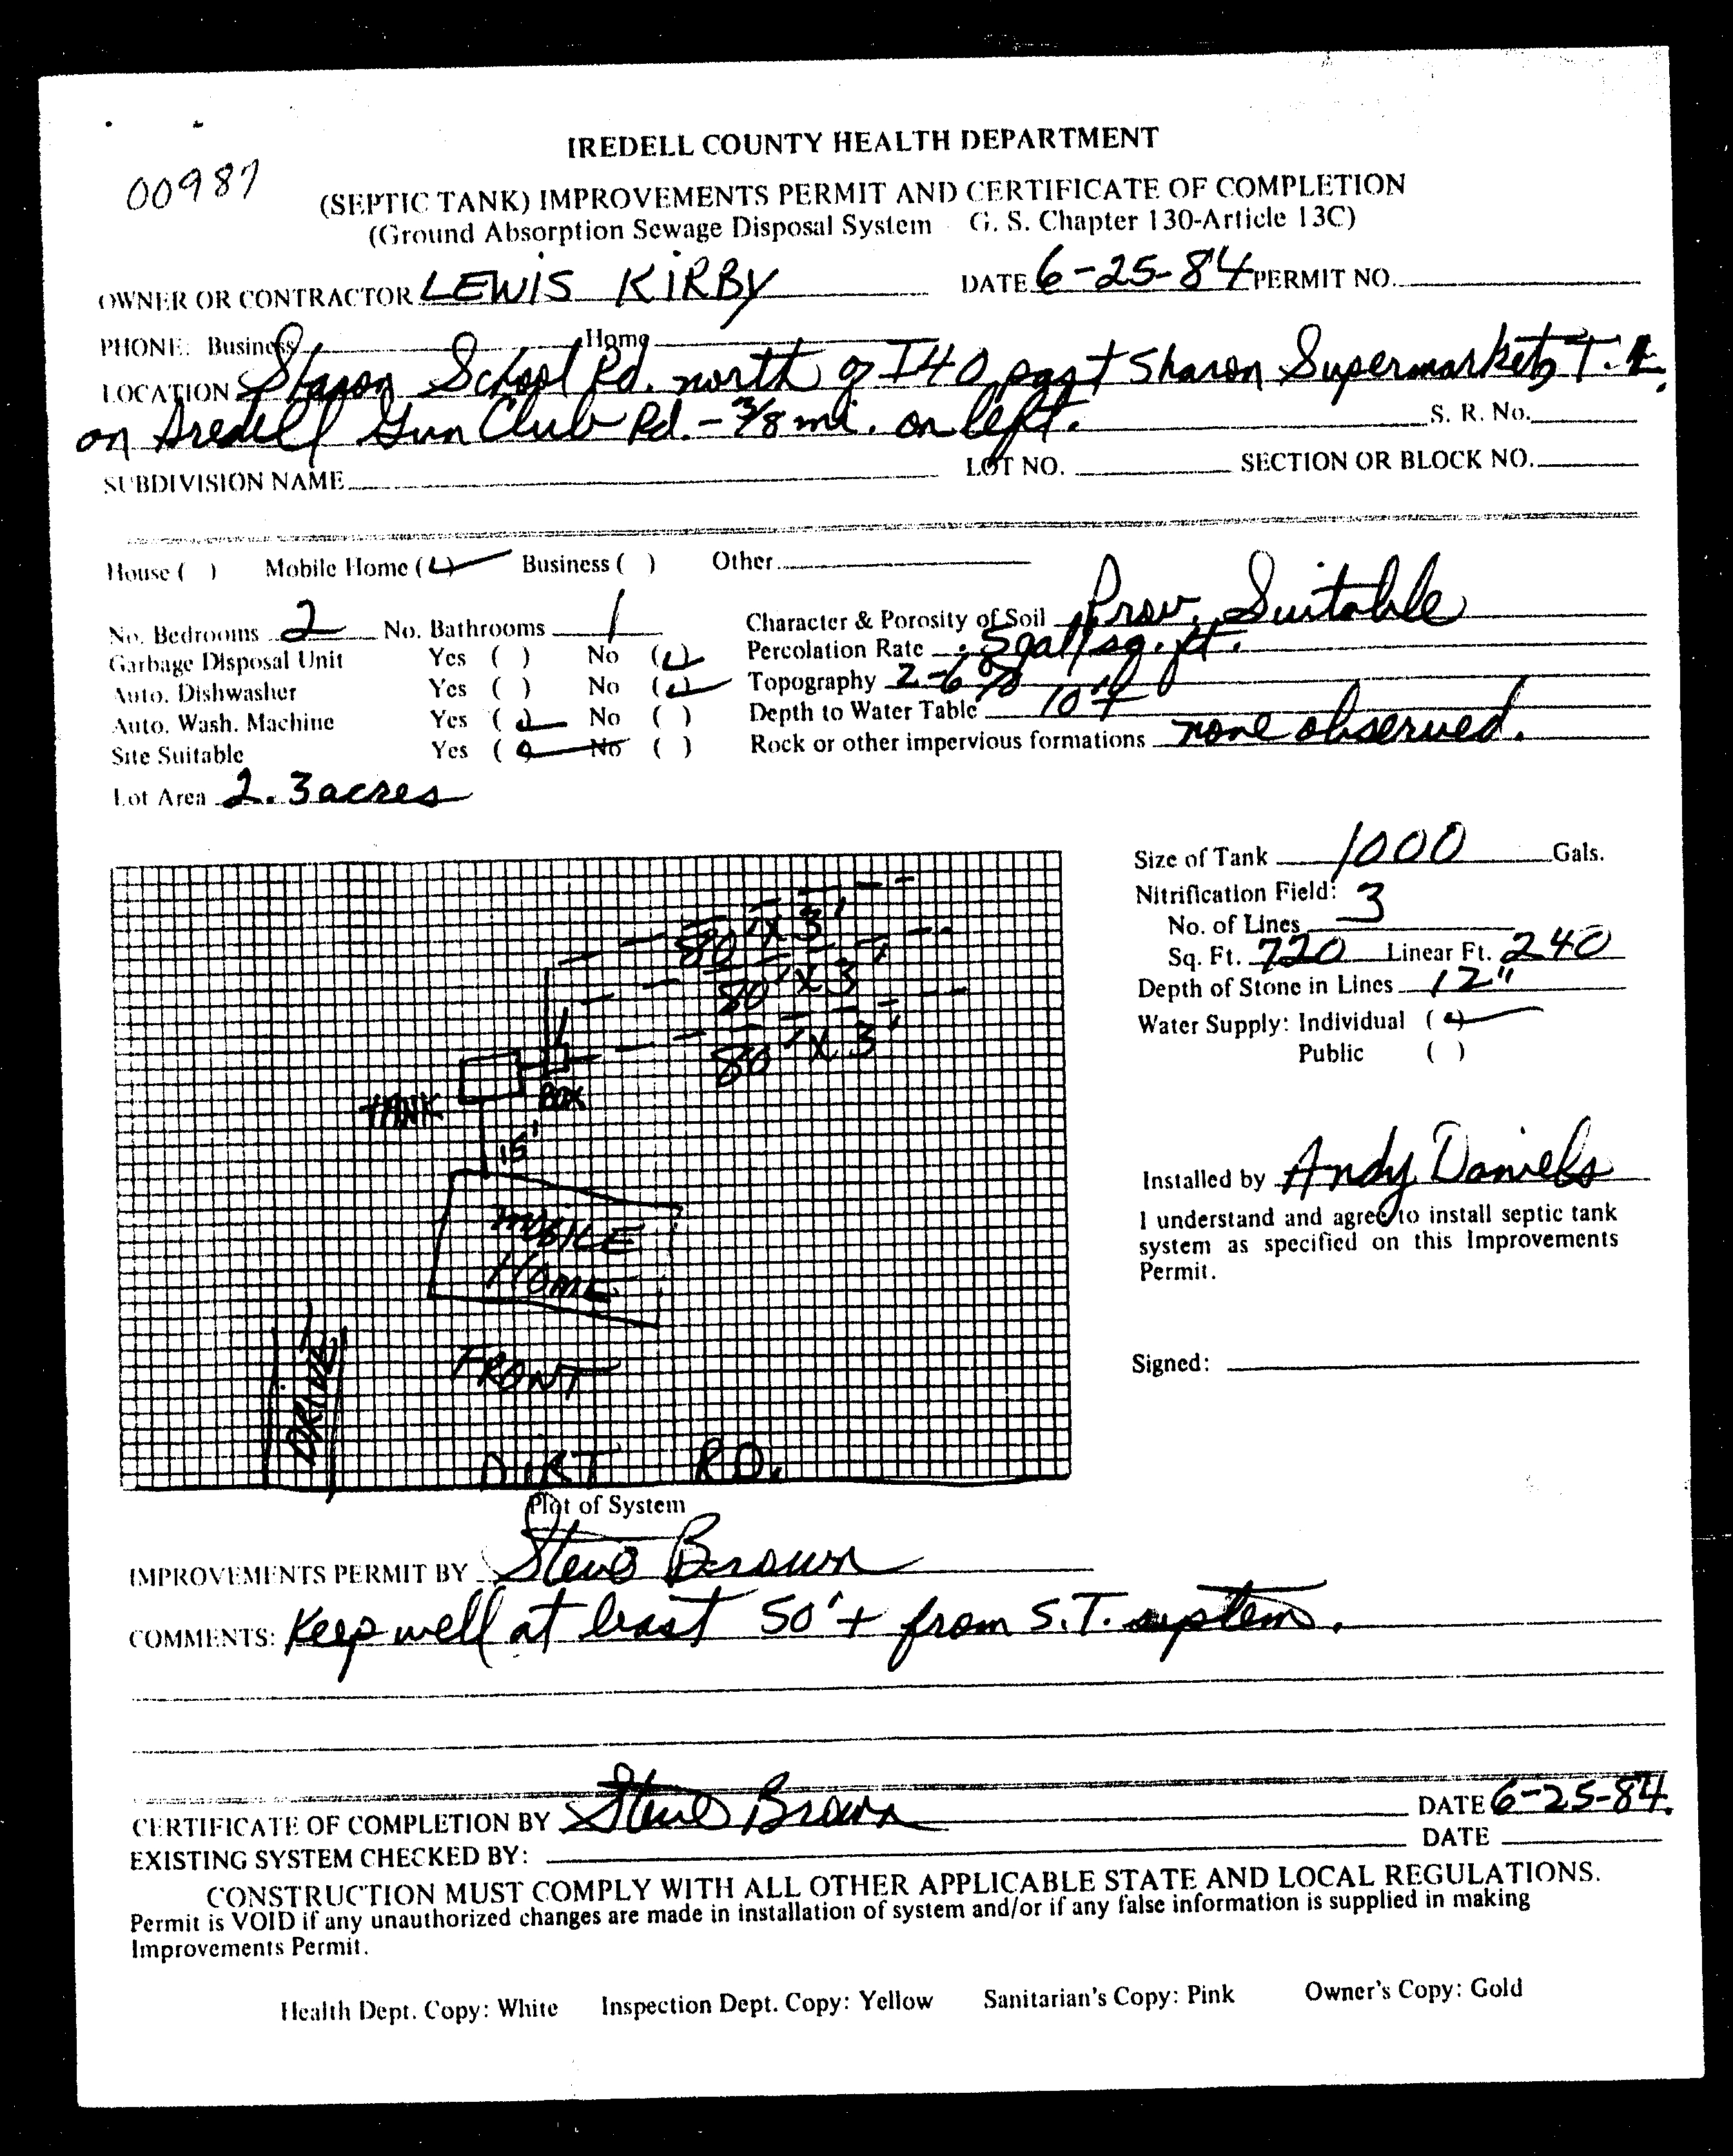 IREDELL COUNTY HEALTH DEPARTMENT
00987
(SEPTIC TANK) IMPROVEMENTS PERMIT AND CERTIFICATE OF COMPLETION
(Ground Absorption Sewage Disposal System - G. S. Chapter 130-Article 13C)
OWNER OR CONTRACTOR LEWIS KIRBY DATE 6-25-84 PERMIT NO.
PHONE: Business Home
LOCATION Sharon School Rd. north of I40 past Sharon Supermarket, T.
on Iredell Gun Club Rd. - 3/8 mi. on left. S. R. No.
SUBDIVISION NAME LOT NO. SECTION OR BLOCK NO.
House ( ) Mobile Home (✓) Business ( ) Other
No. Bedrooms 2 No. Bathrooms 1 Character & Porosity of Soil Prov. Suitable
Garbage Disposal Unit Yes ( ) No (✓) Percolation Rate .5 gal/sq. ft.
Auto. Dishwasher Yes ( ) No (✓) Topography 2-6%
Auto. Wash. Machine Yes (✓) No ( ) Depth to Water Table 10'+
Site Suitable Yes (✓) No ( ) Rock or other impervious formations none observed.
Lot Area 2.3 acres
Size of Tank 1000 Gals.
Nitrification Field:
No. of Lines 3
Sq. Ft. 720 Linear Ft. 240
Depth of Stone in Lines 12"
Water Supply: Individual (✓)
Public ( )
80' X 3'
80' X 3'
80' X 3'
TANK BOX
15'
MOBILE
HOME
FRONT
DRIVE
DIRT RD.
Installed by Andy Daniels
I understand and agree to install septic tank
system as specified on this Improvements
Permit.
Signed:
Plot of System
IMPROVEMENTS PERMIT BY Steve Brown
COMMENTS: Keep well at least 50'+ from S.T. system.
CERTIFICATE OF COMPLETION BY Steve Brown DATE 6-25-84
EXISTING SYSTEM CHECKED BY: DATE
CONSTRUCTION MUST COMPLY WITH ALL OTHER APPLICABLE STATE AND LOCAL REGULATIONS.
Permit is VOID if any unauthorized changes are made in installation of system and/or if any false information is supplied in making
Improvements Permit.
Health Dept. Copy: White Inspection Dept. Copy: Yellow Sanitarian's Copy: Pink Owner's Copy: Gold